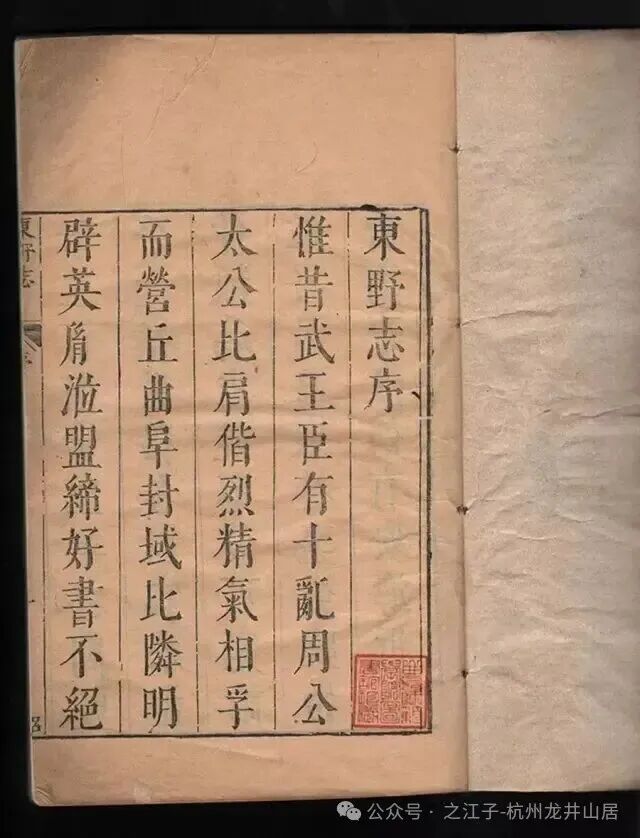 東野志序
惟昔武王臣有十亂周公
太公比肩偕烈精氣相孚
而營丘曲阜封域比隣明
辟英胄涖盟締好書不絕
東野志
公众号 · 之江子-杭州龙井山居